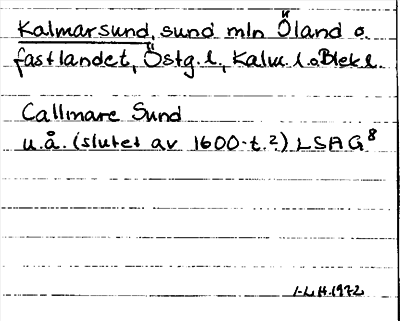 Kalmarsund, sund mln Öland o.
fastlandet, Östg. l., Kalm. l. o Blek l.
Callmare Sund
u.å. (slutet av 1600-t.?) LSAG 8
I-L.H. 1972